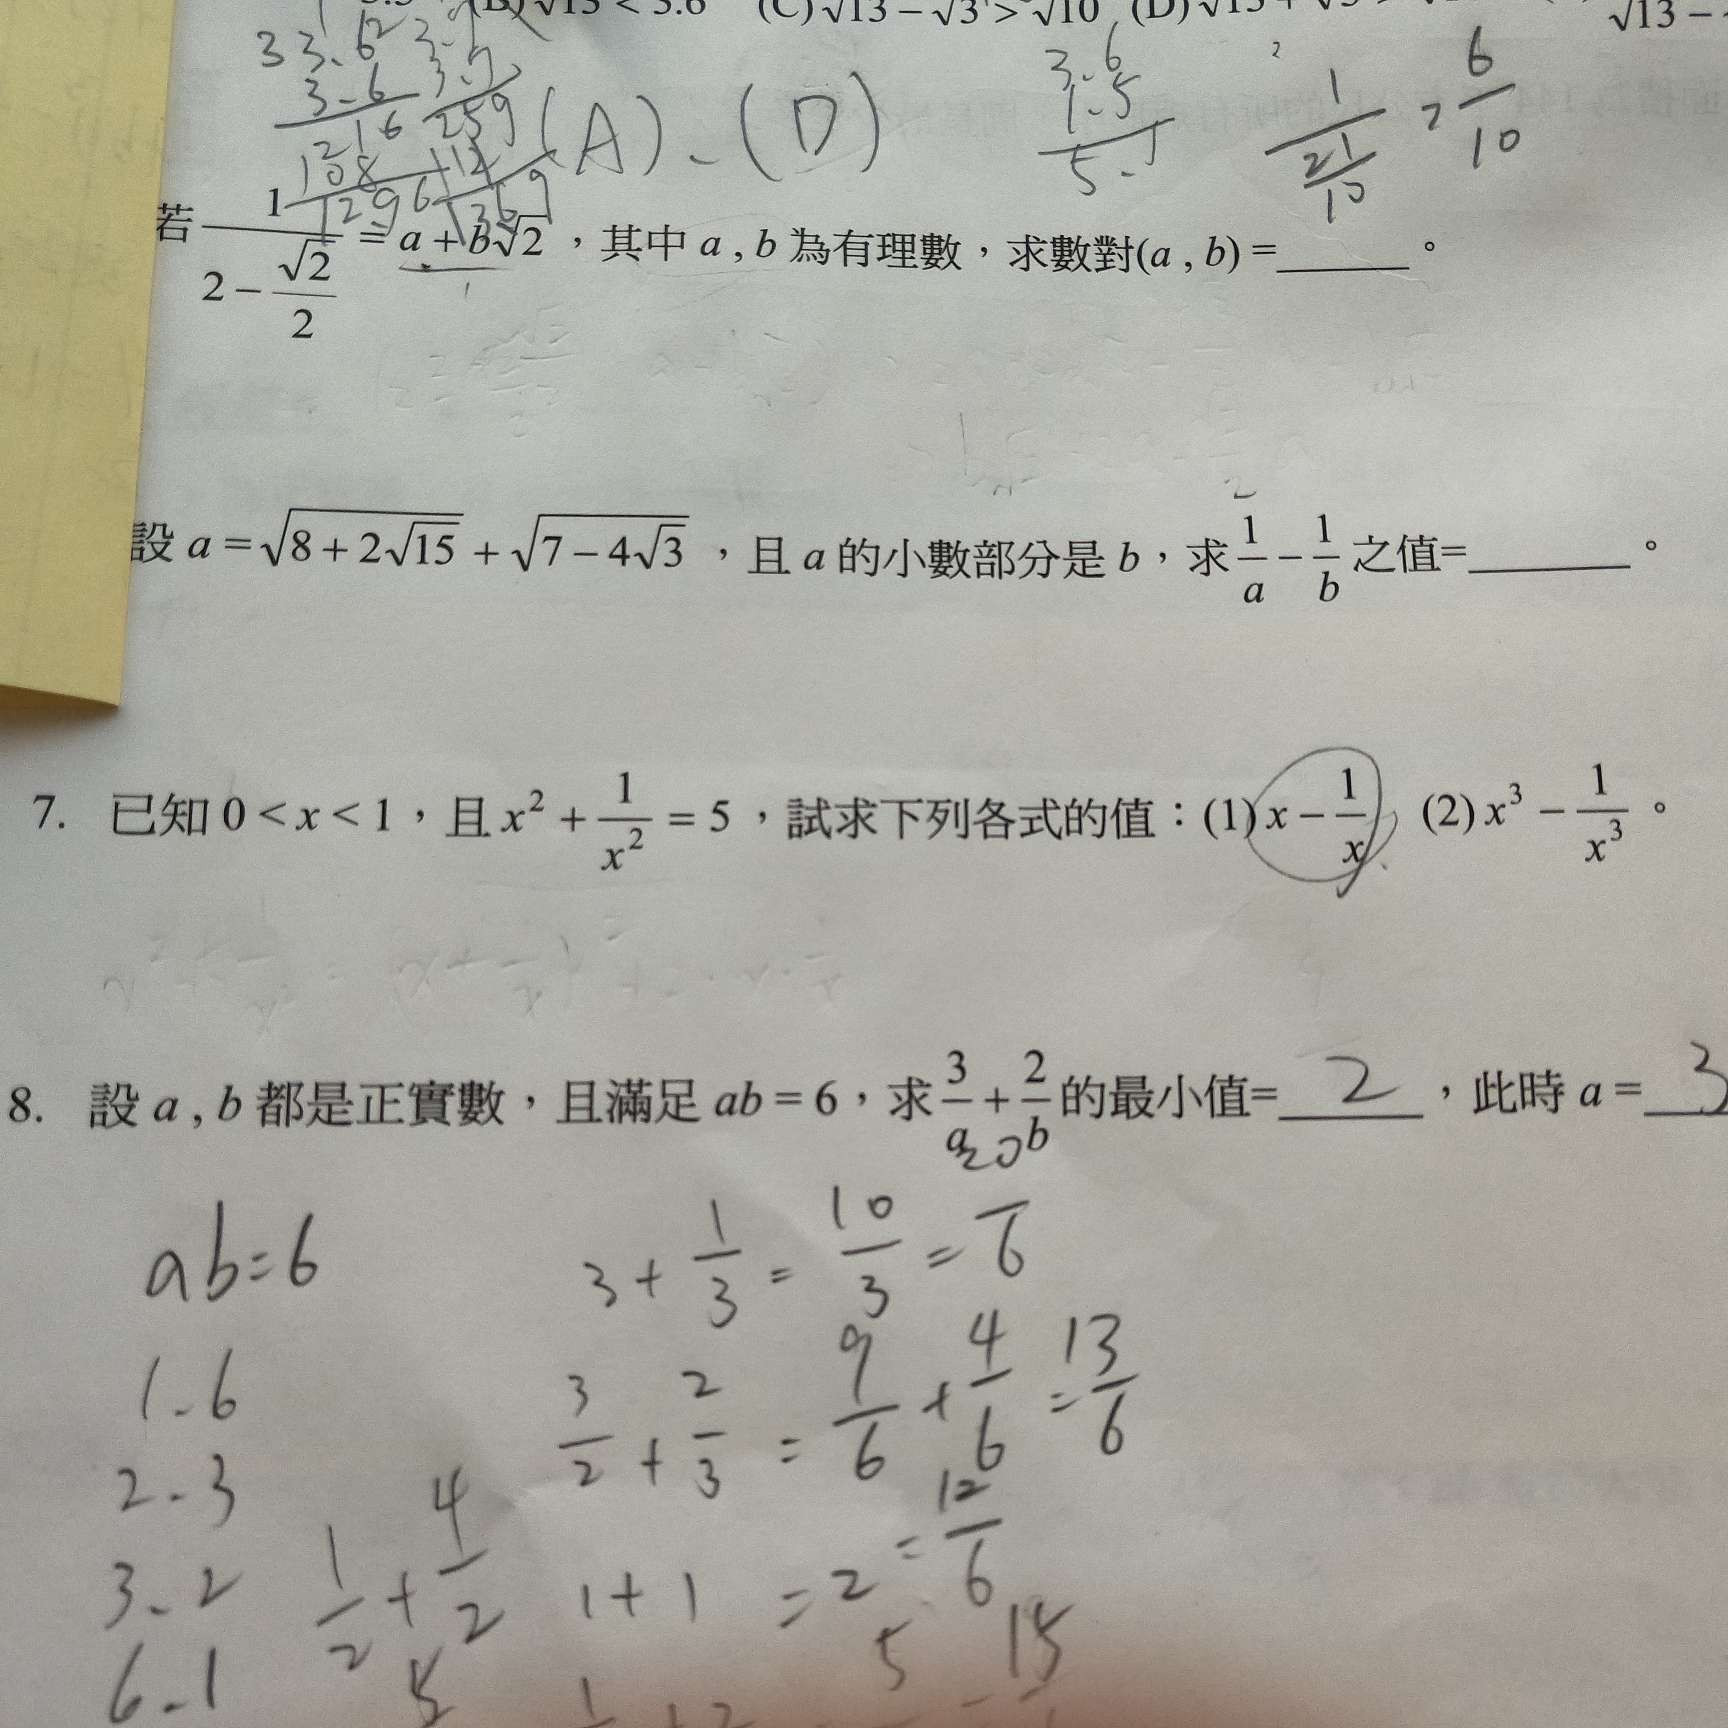 (B) √13 < 3.6 (C) √13 − √3 > √10 (D)
√13 −
3 3.6
3.6
216
108
1296
3.7
259
1369
(A)、(D)
3.6
1.5
5.1
1/(21/10)
6/10
若 1/(2 − √2/2) = a + b√2，其中 a , b 為有理數，求數對(a , b) =______。
設 a = √(8 + 2√15) + √(7 − 4√3)，且 a 的小數部分是 b，求 1/a − 1/b 之值=______。
7. 已知 0 < x < 1，且 x² + 1/x² = 5，試求下列各式的值：(1) x − 1/x (2) x³ − 1/x³。
8. 設 a , b 都是正實數，且滿足 ab = 6，求 3/a + 2/b 的最小值= 2 ，此時 a = 3
20
ab=6 3 + 1/3 = 10/3 = /6
1.6 3/2 + 2/3 = 9/6 + 4/6 = 13/6
2.3
3.2 1/2 + 4/2 1+1 = 2 = 12/6
6.1 5 5 15